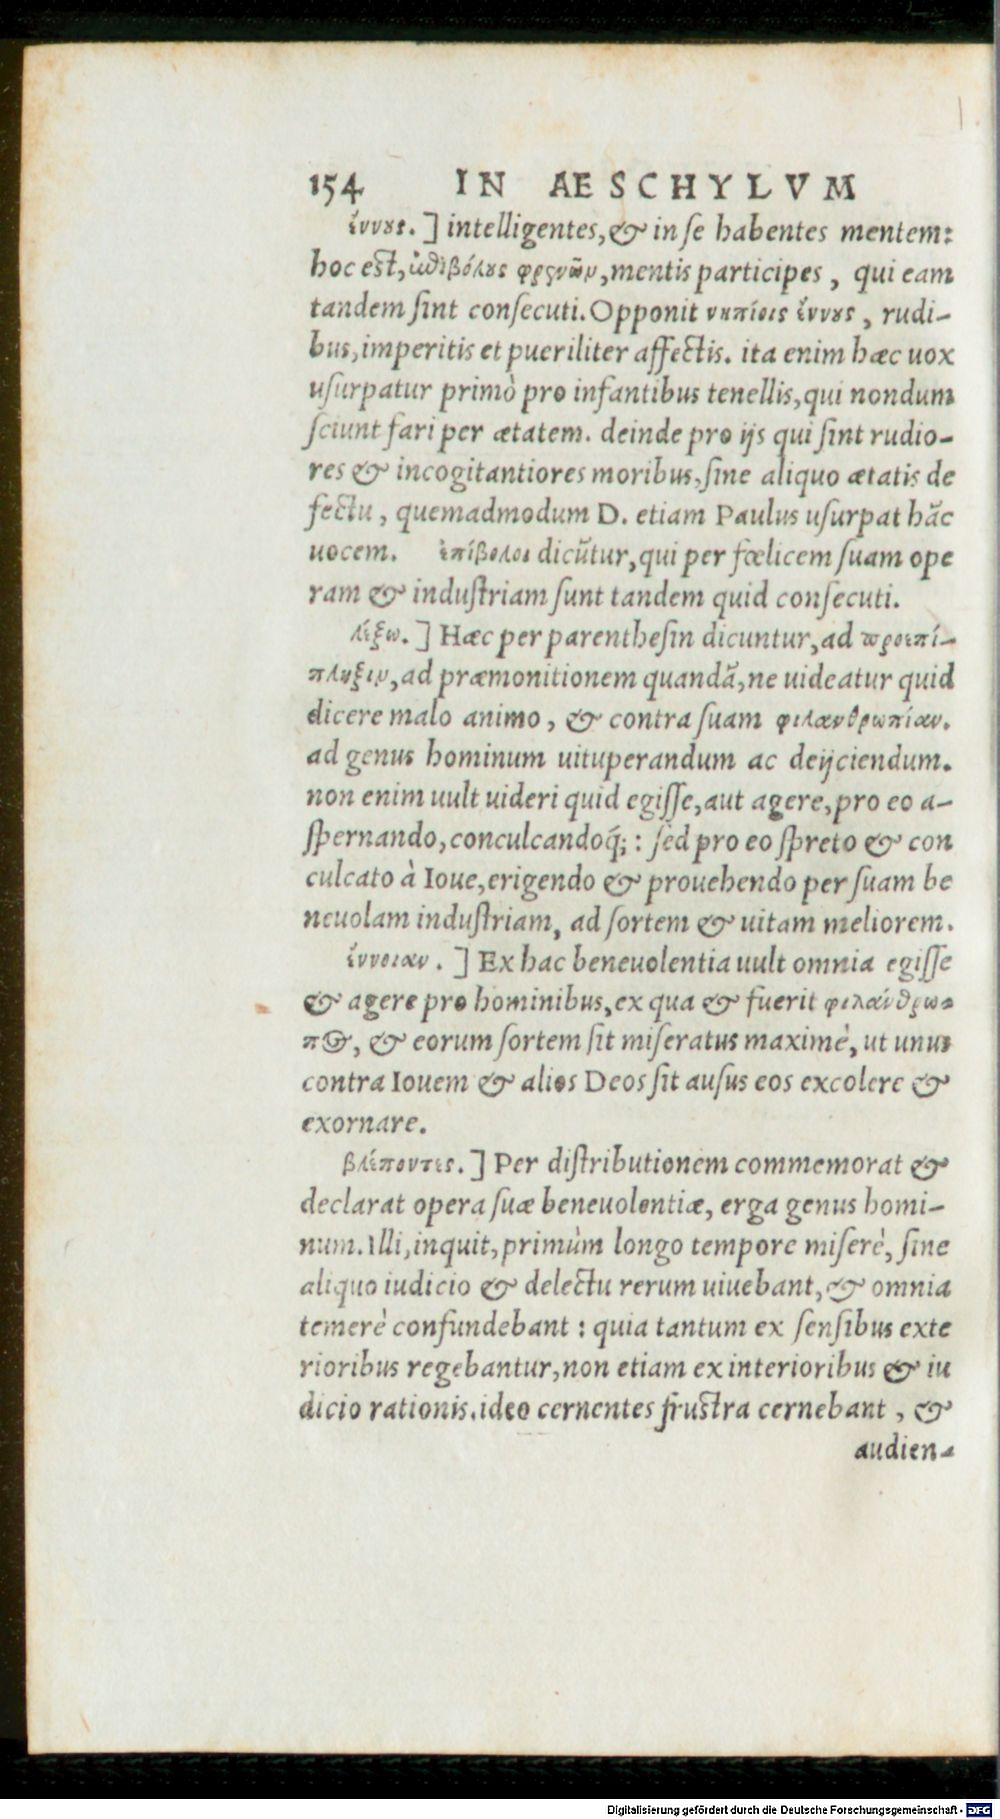 154 IN AESCHYLVM
ἔννους.] intelligentes, & in se habentes mentem:
hoc est, ἐπηβόλους φρενῶν, mentis participes, qui eam
tandem sint consecuti. Opponit νηπίοις ἔννους, rudi-
bus, imperitis et pueriliter affectis. ita enim hæc uox
usurpatur primò pro infantibus tenellis, qui nondum
sciunt fari per ætatem. deinde pro ijs qui sint rudio-
res & incogitantiores moribus, sine aliquo ætatis de
fectu, quemadmodum D. etiam Paulus usurpat hãc
uocem. ἐπίβολοι dicũtur, qui per fœlicem suam ope
ram & industriam sunt tandem quid consecuti.
λέξω.] Hæc per parenthesin dicuntur, ad προεπί-
πληξιν, ad præmonitionem quandã, ne uideatur quid
dicere malo animo, & contra suam φιλανθρωπίαν.
ad genus hominum uituperandum ac deijciendum.
non enim uult uideri quid egisse, aut agere, pro eo a-
spernando, conculcandoq́;: sed pro eo spreto & con
culcato à Ioue, erigendo & prouehendo per suam be
neuolam industriam, ad sortem & uitam meliorem.
ἔννοιαν.] Ex hac beneuolentia uult omnia egisse
& agere pro hominibus, ex qua & fuerit φιλάνθρω-
πος, & eorum sortem sit miseratus maximè, ut unus
contra Iouem & alios Deos sit ausus eos excolere &
exornare.
βλέποντες.] Per distributionem commemorat &
declarat opera suæ beneuolentiæ, erga genus homi-
num. Illi, inquit, primùm longo tempore miserè, sine
aliquo iudicio & delectu rerum uiuebant, & omnia
temerè confundebant: quia tantum ex sensibus exte
rioribus regebantur, non etiam ex interioribus & iu
dicio rationis. ideo cernentes frustra cernebant, &
audien-
Digitalisierung gefördert durch die Deutsche Forschungsgemeinschaft - DFG